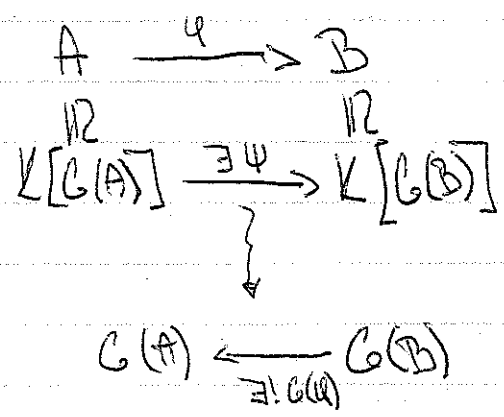 A —φ→ B
≅ ≅
K[G(A)] —∃ψ→ K[G(B)]
G(A) ← G(B)
∃! G(φ)